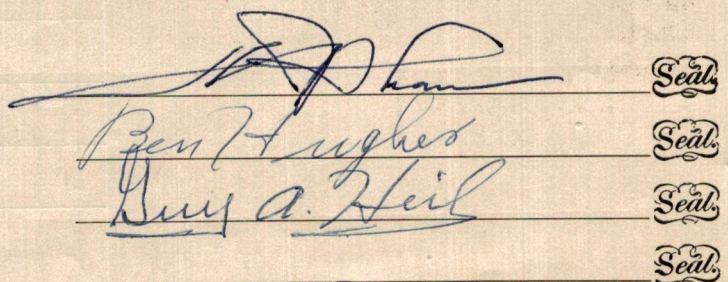 Seal.
Ben Hughes Seal.
Guy A. Seal.
Seal.